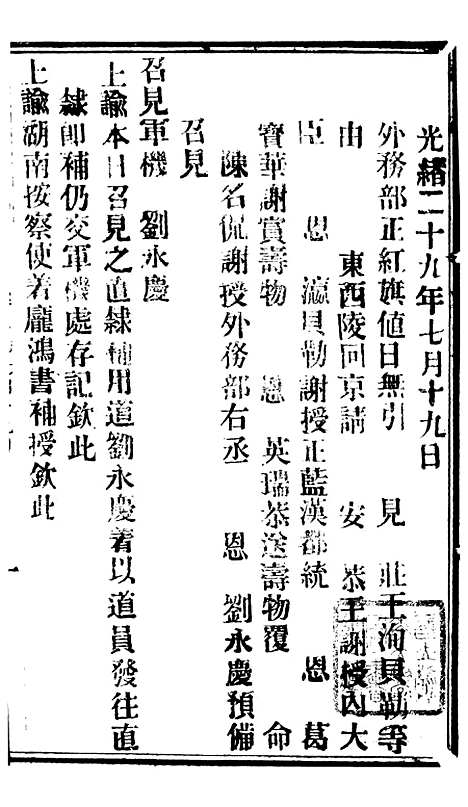 光緒二十九年七月十九日
外務部正紅旗值日無引　見　莊王洵貝勒等
由　東西陵回京請　安　恭王謝授內大
臣　恩　瀛貝勒謝授正藍漢都統　恩　葛
寶華謝賞壽物　恩　英瑞恭送壽物覆　命
陳名侃謝授外務部右丞　恩　劉永慶預備
召見
召見軍機　劉永慶
上諭本日召見之直隸補用道劉永慶着以道員發往直
隸即補仍交軍機處存記欽此
上諭湖南按察使着龐鴻書補授欽此
一